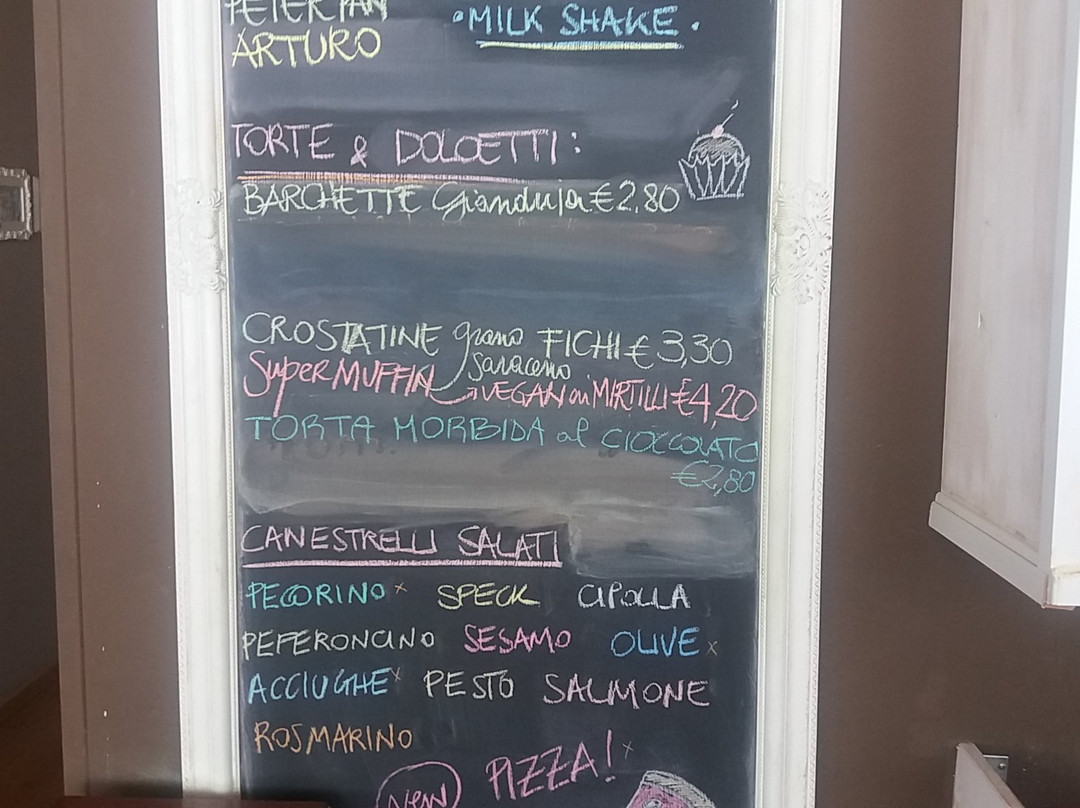 PETER PAN
ARTURO
• MILK SHAKE •
TORTE & DOLCETTI:
BARCHETTE Gianduja €2,80
CROSTATINE grano saraceno FICHI € 3,30
Super MUFFIN → VEGAN ai MIRTILLI €4,20
TORTA MORBIDA al CIOCCOLATO
€2,80
CANESTRELLI SALATI
PECORINO x SPECK CIPOLLA
PEPERONCINO SESAMO OLIVE x
ACCIUGHE x PESTO SALMONE
ROSMARINO
New PIZZA! x